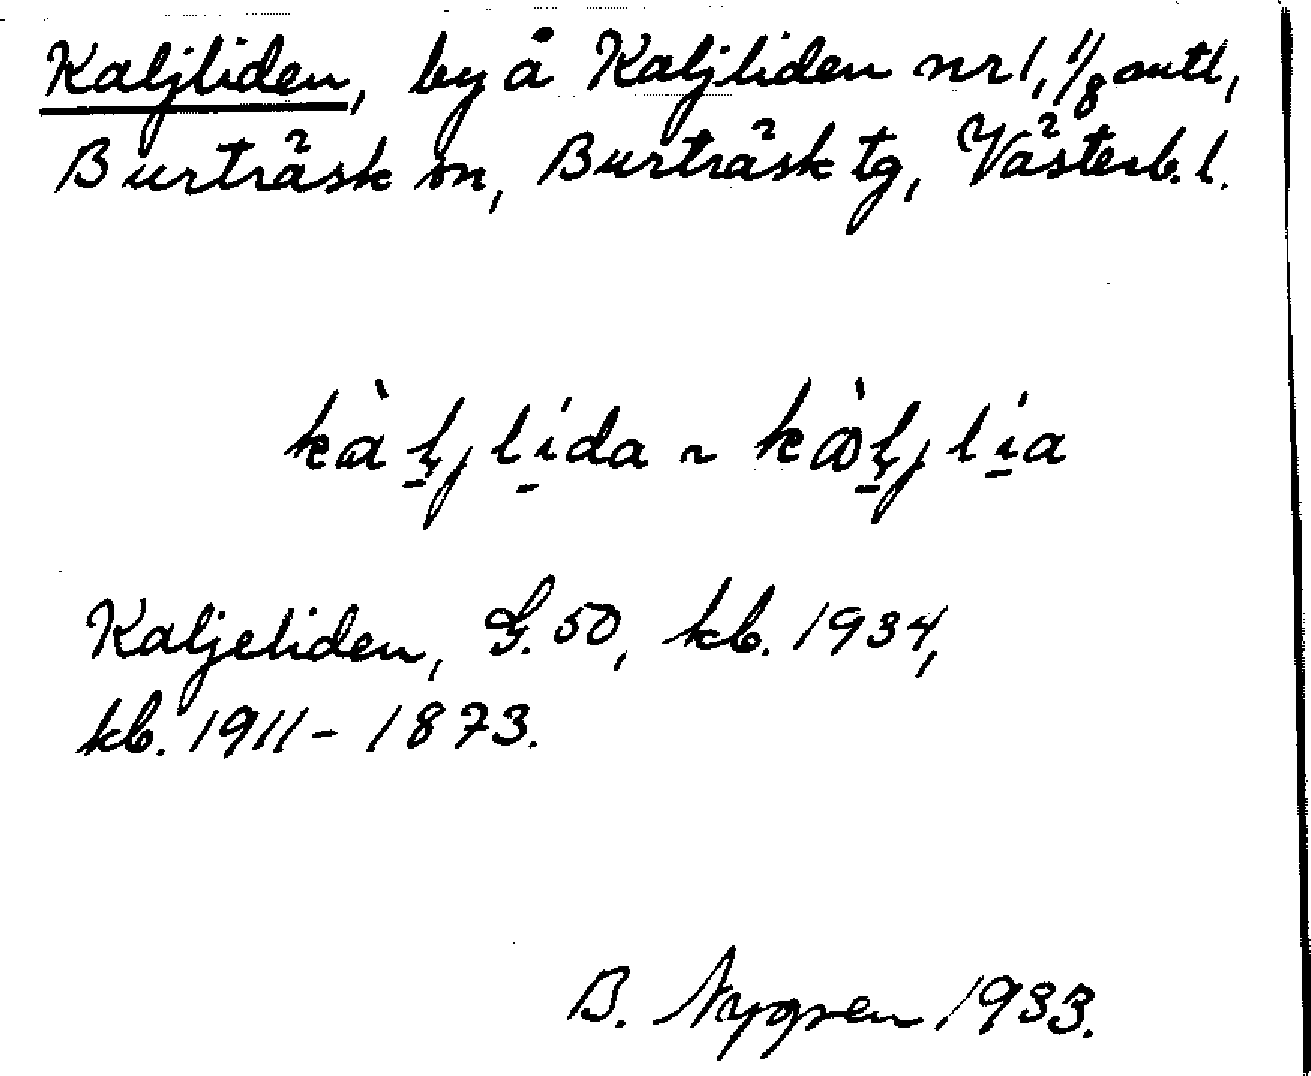 Kaljliden, by å Kaljliden nr 1, 1/8 mtl,
Burträsk sn, Burträsk tg, Västerb. l.
kàl̠jlı̠́da ~ kòl̠jlı̠́a
Kaljeliden, G. 50, kb. 1934,
kb. 1911-1873.
B. Nygren 1933.